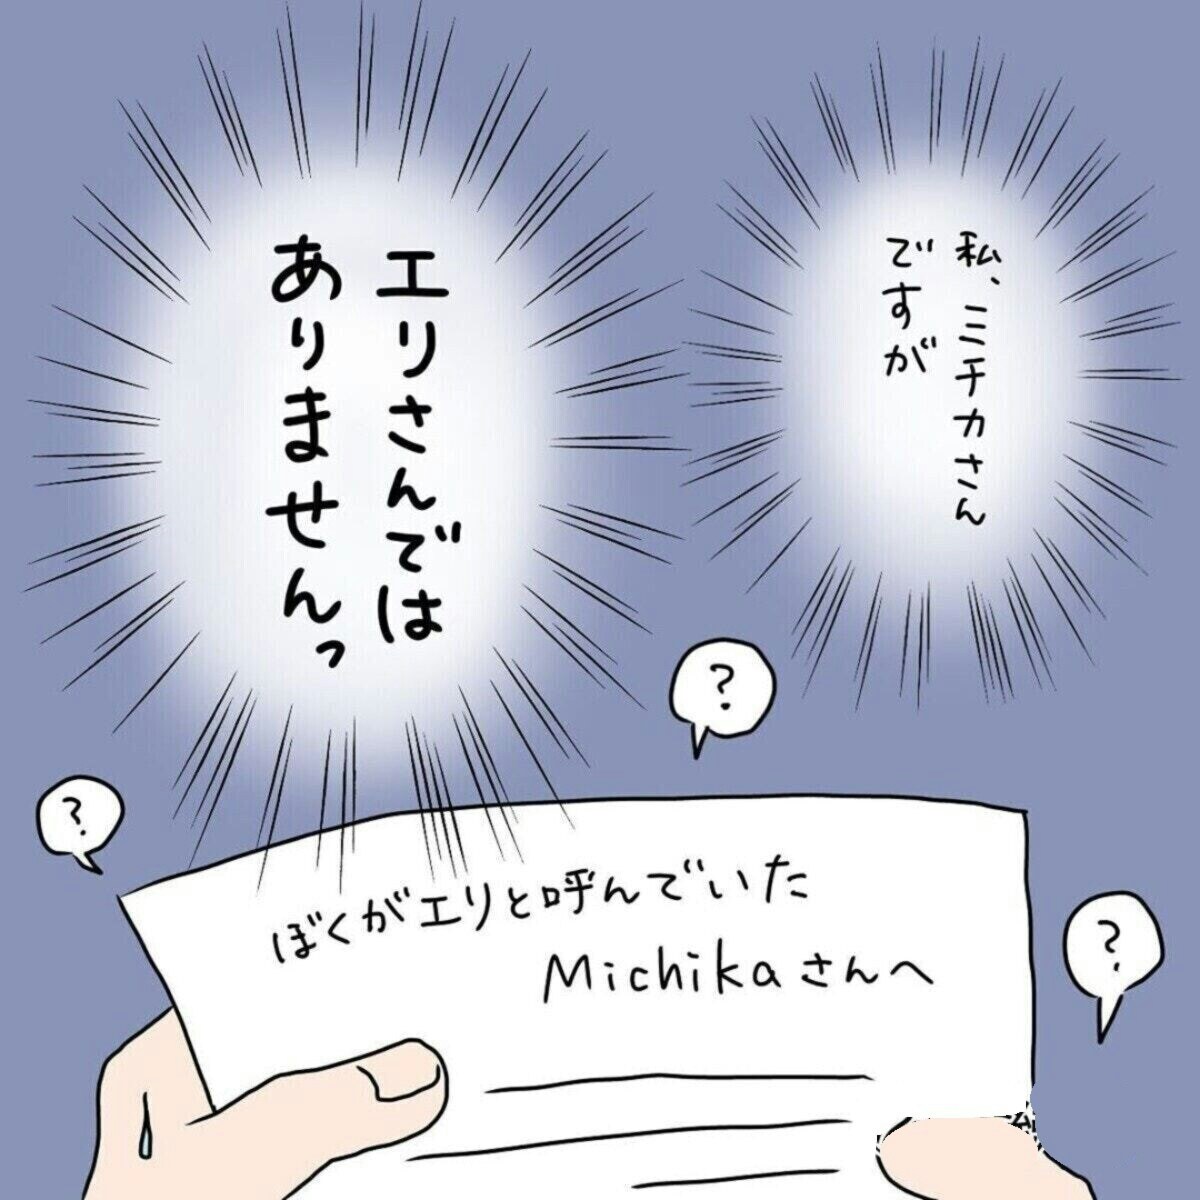 私、ミチカさん
ですが
エリさんでは
ありませんっ
?
?
?
ぼくがエリと呼んでいた
Michikaさんへ